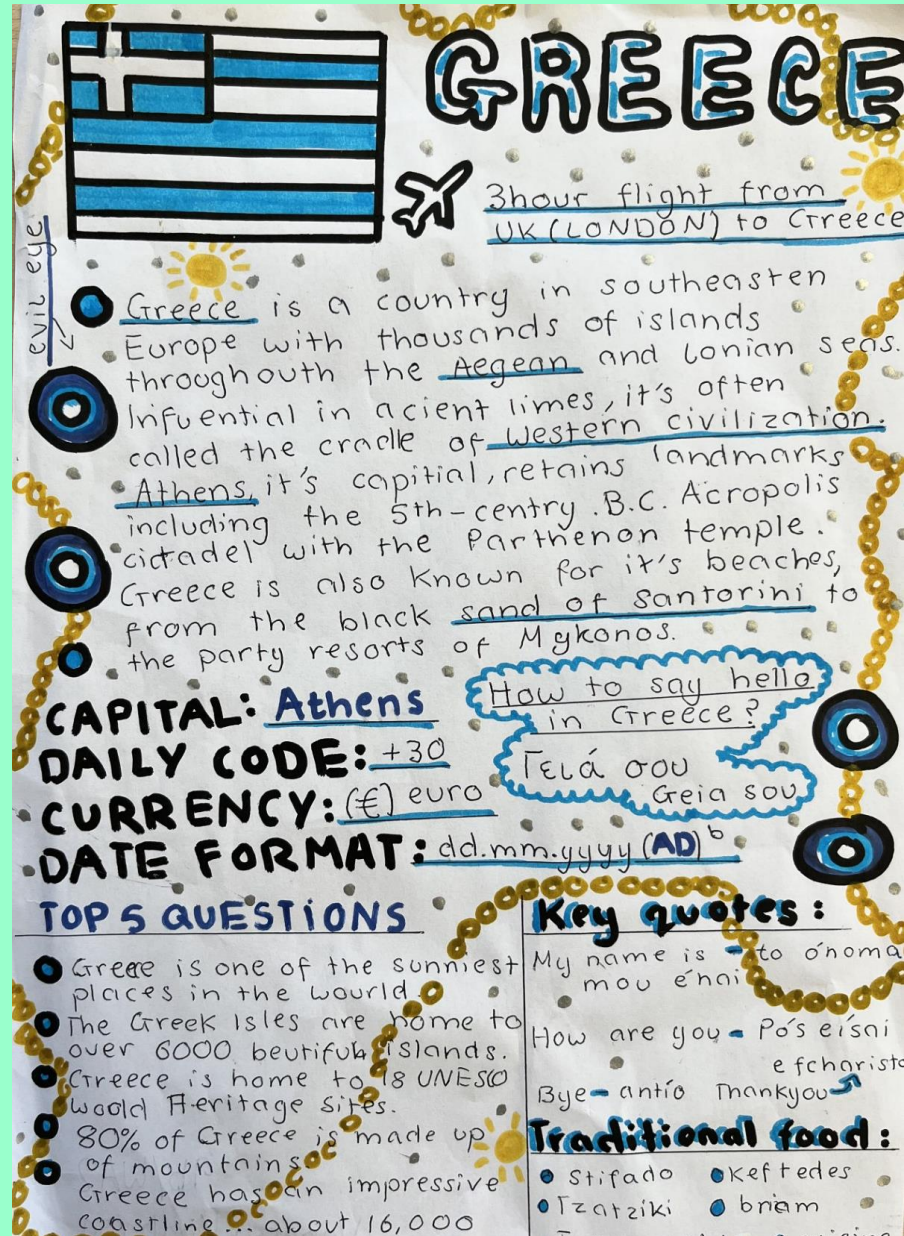 GREECE
3hour flight from
UK (LONDON) to Greece
evil eye
Greece is a country in southeasten
Europe with thousands of islands
throughouth the Aegean and Lonian seas.
Infuential in acient limes, it's often
called the cradle of western civilization.
Athens, it's capitial, retains landmarks
including the 5th-centry .B.C. Acropolis
citadel with the Parthenon temple.
Greece is also known for it's beaches,
from the black sand of santorini to
the party resorts of Mykonos.
CAPITAL: Athens
DAILY CODE: +30
CURRENCY: (€) euro
DATE FORMAT: dd.mm.yyyy (AD) b
How to say hello
in Greece?
Γειά σου
Geia sou
TOP 5 QUESTIONS
Greece is one of the sunniest
places in the wourld
The Greek Isles are home to
over 6000 beutifuk islands.
Greece is home to 18 UNESCO
woold Heritage sites.
80% of Greece is made up
of mountains
Greece has an impressive
coastline... about 16,000
Key quotes:
My name is - to ónoma
mou énai
How are you - Pós eísai
efcharisto
Bye - antío Thankyou
Traditional food:
Stifado Keftedes
Tzatziki briam